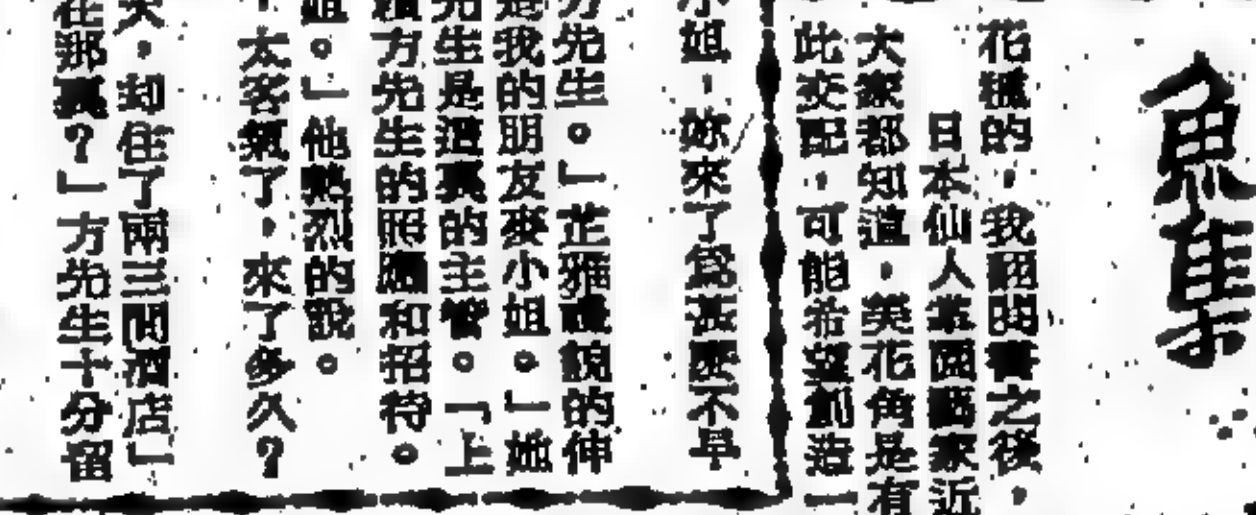 魚集
花種的，我翻閱書之後，
日本仙人掌園藝家近
大家都知道，美花角是有
此交配，可能希望創造一
小姐，妳來了為甚麼不早
方先生。」芷雅護說的伸
是我的朋友麥小姐。」她
先生是這裏的主管。「上
方先生的照應和招待。
姐。」他熱烈的說。
太客氣了，來了多久？
天，却住了兩三間酒店」
在那裏？」方先生十分留